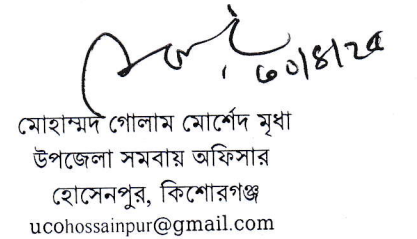 ৩০/৪/২৫
মোহাম্মদ গোলাম মোর্শেদ মৃধা
উপজেলা সমবায় অফিসার
হোসেনপুর, কিশোরগঞ্জ
ucohossainpur@gmail.com